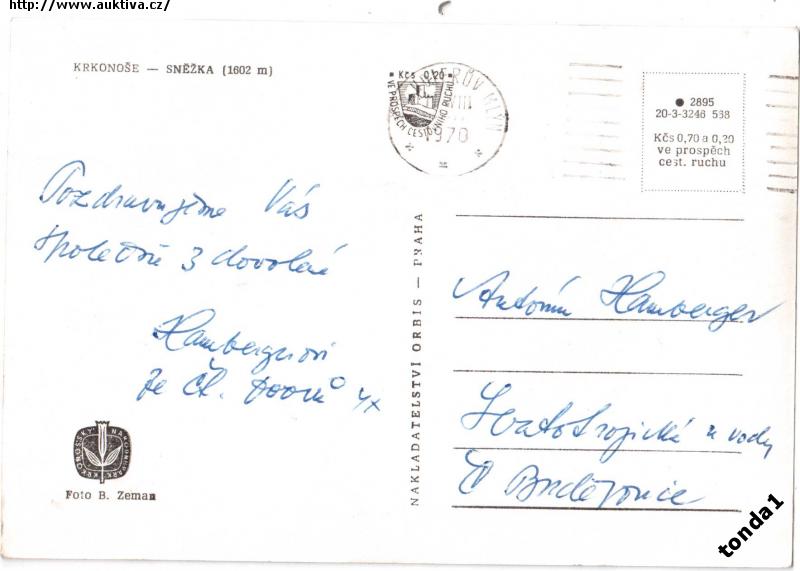 http://www.auktiva.cz/
KRKONOŠE — SNĚŽKA (1602 m)
Kčs 0,20
VE PROSPĚCH CESTOVNÍHO RUCHU
VIII
1970
2895
20-3-3246 538
Kčs 0,70 a 0,20
ve prospěch
cest. ruchu
Pozdravujeme Vás
společně z dovolené
Hambergrovi
ze Čt. Dvorů
NAKLADATELSTVÍ ORBIS — PRAHA
Antonín Hamberger
Svatotrojická u vody
Č Budějovice
KRKONOŠSKÝ NÁRODNÍ PARK
Foto B. Zeman
tonda1